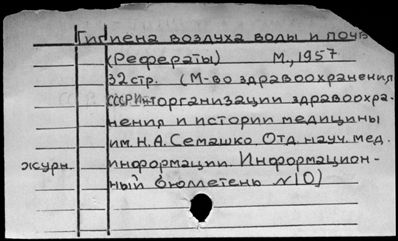 Гигиена воздуха воды и почв
(Рефераты) М., 1957
32 стр. (М-во здравоохранения
СССР Ин-т организации здравоохра-
нения и истории медицины
им. Н.А. Семашко. Отд. науч. мед.
журн. информации. Информацион-
ный бюллетень №10)